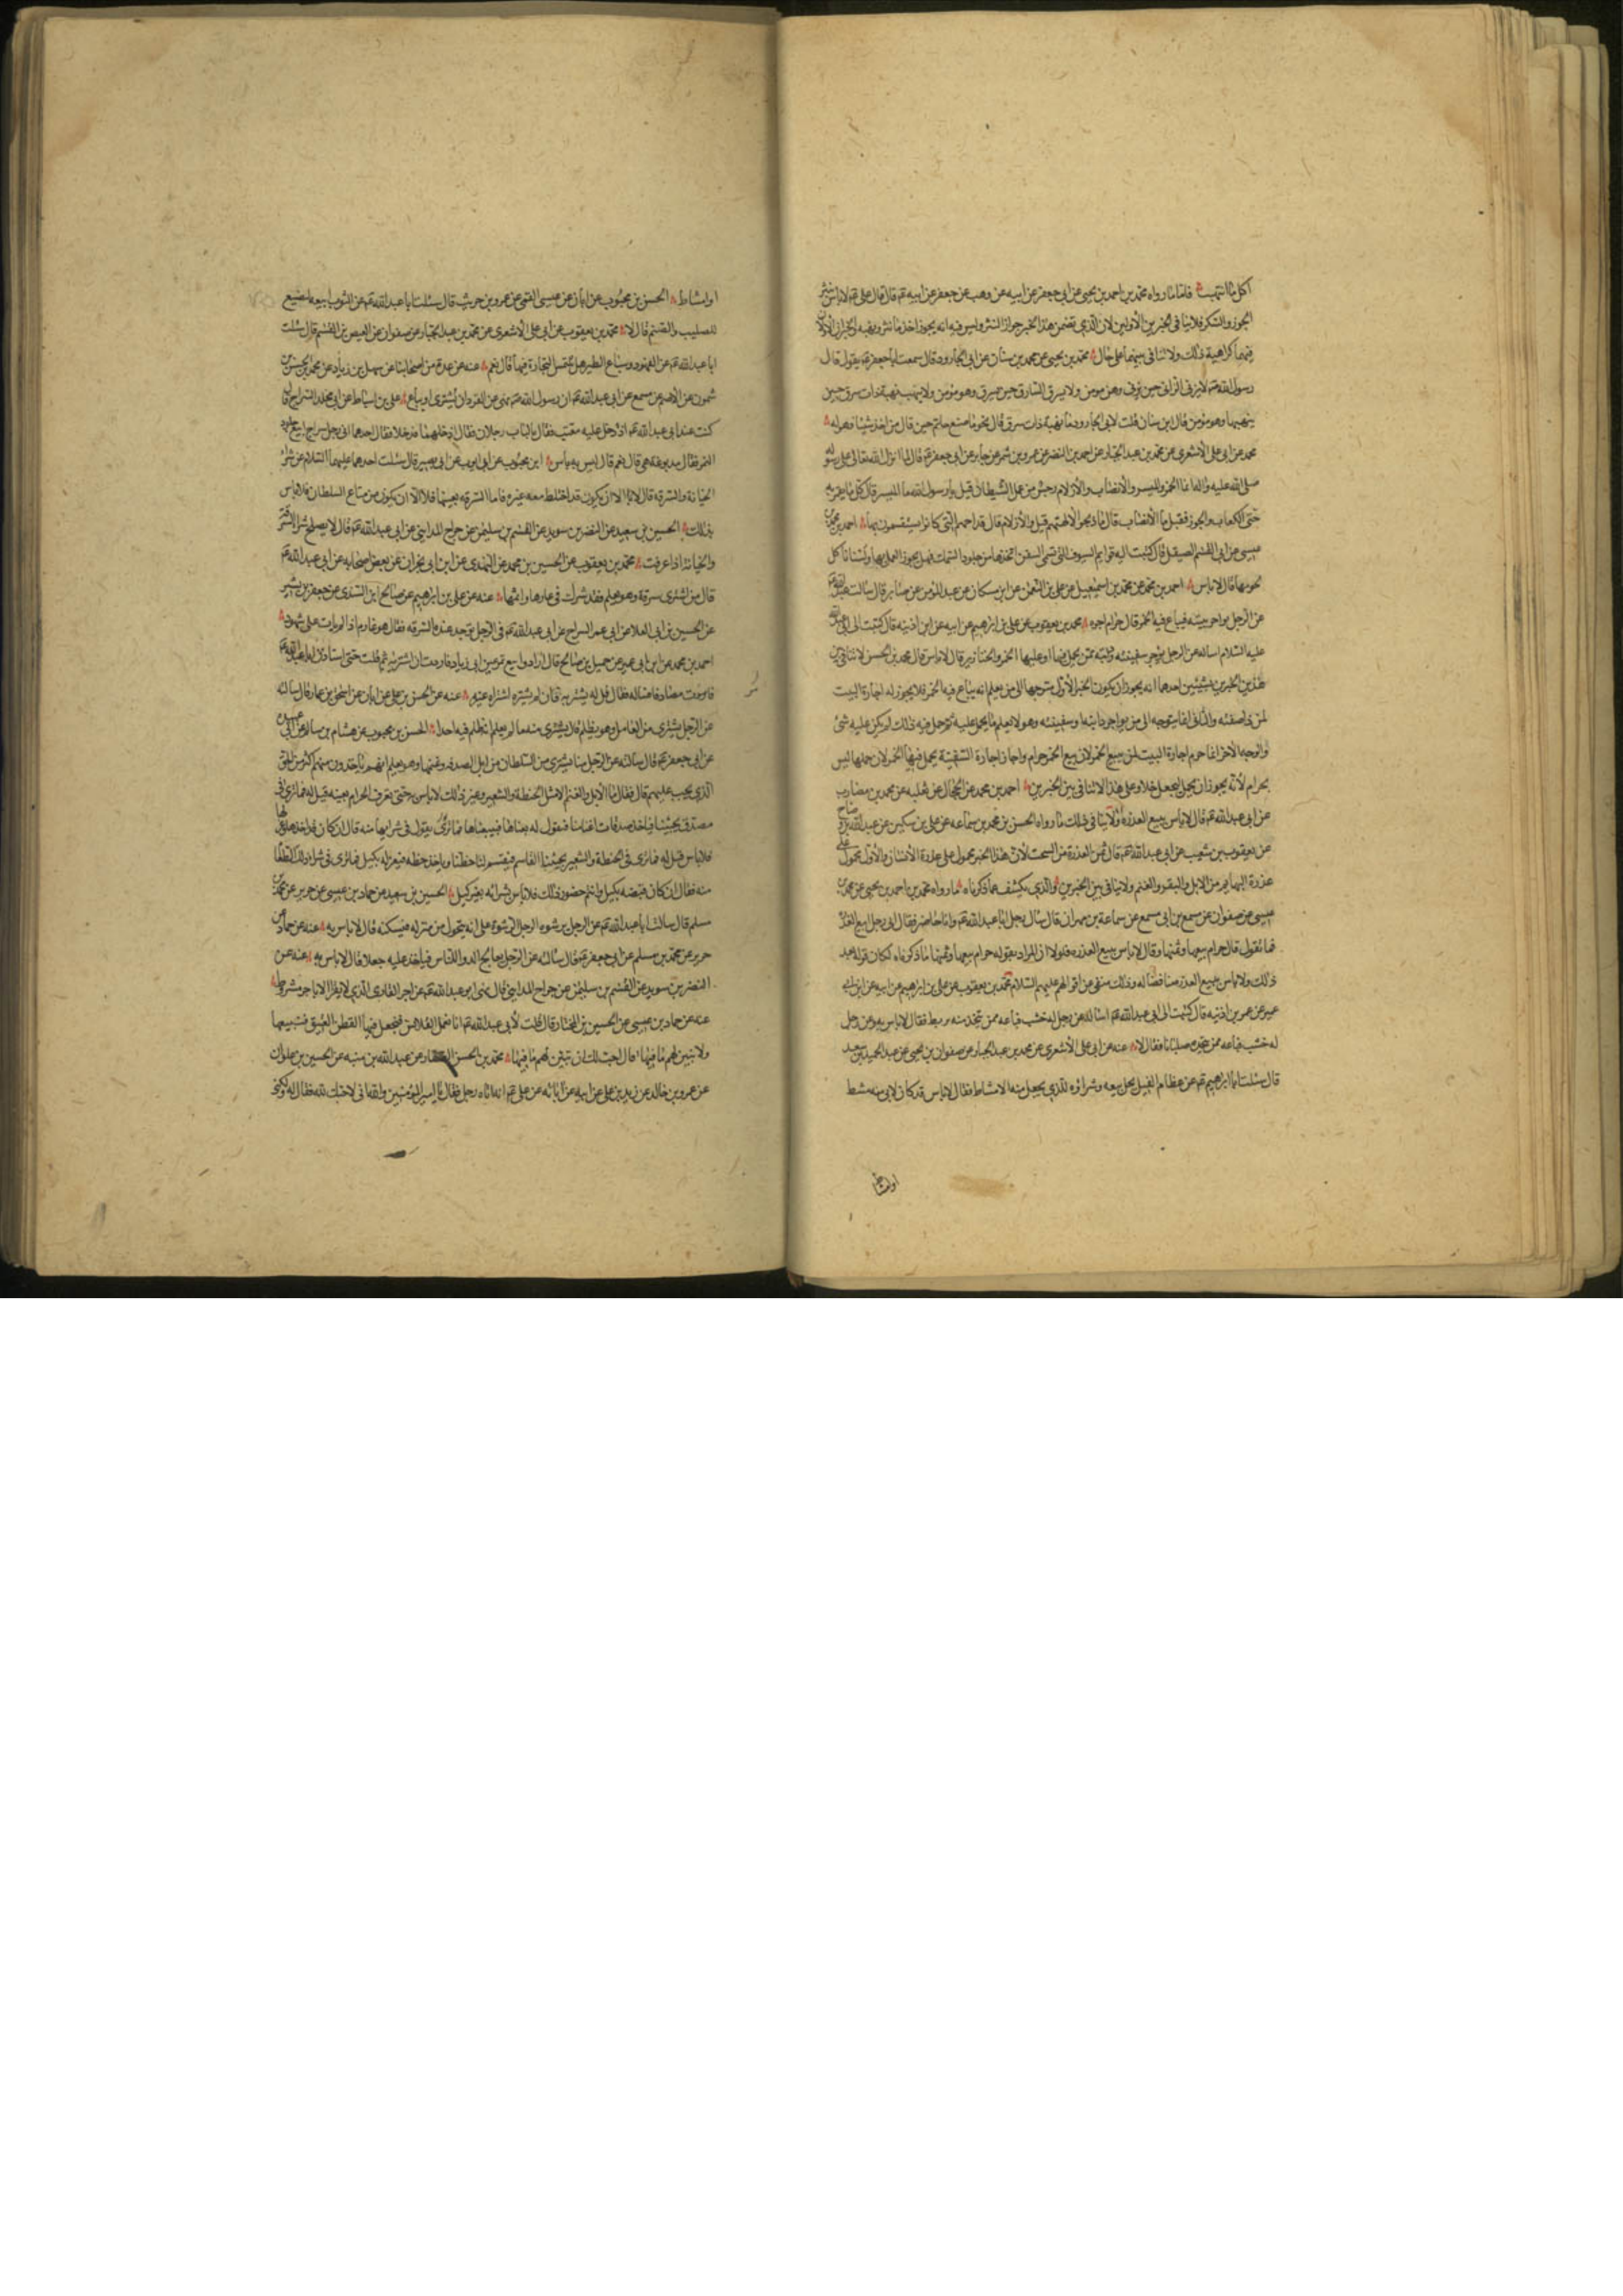 اكل ما انتهب فاما ما رواه محمد بن احمد بن يحيى عن ابي جعفر عن ابيه عن وهب عن جعفر عن ابيه ع قال قال علي ع لا باس بنثر
الجوز والسكر فلا ينافى الخبرين الأولين لأن الذي تضمن هذا الخبر جواز النثر وليس فيه انه يجوز اخذ ما نثر ونهبه والخبران الأولان
فيهما كراهية ذلك ولا تنافى بينهما على حال محمد بن يحيى عن محمد بن سنان عن ابي الجارود قال سمعت ابا جعفر ع يقول قال
رسول الله ص لا يزنى الزانى حين يزنى وهو مومن ولا يسرق السارق حين يسرق وهو مؤمن ولا ينهب نهبة ذات سرق حين
ينهبها وهو مؤمن قال ابن سنان قلت لابي الجارود ما نهبة ذات سرق قال نحو ما صنع حاتم حين قال من اخذ شيئا فهو له
محمد عن ابى على الاشعرى عن محمد بن عبد الجبار عن احمد بن النضر عن عمرو بن شمر عن جابر عن ابي جعفر ع قال لما انزل الله تعالى على رسوله
صلى الله عليه واله انما الخمر والميسر والأنصاب والأزلام رجس من عمل الشيطان قيل يا رسول الله ما الميسر قال كل ما يقمر به
حتى الكعاب والجوز فقيل ما الأنصاب قال ما ذبحوا لآلهتهم قيل والأزلام قال قداحهم التى كانوا يستقسمون بها احمد بن محمد بن
عيسى عن ابى القسم الصيقل قال كتبت اليه قوايم السيوف التى تسمى السفن اتخذها من جلود السمك فهل يجوز العمل بها ولسنا ناكل
لحومها قال لا باس احمد بن محمد عن محمد بن اسمعيل عن على بن النعمن عن ابن مسكان عن عبد المؤمن عن صابر قال سألت ابا عبد الله ع
عن الرجل يواجر بيته فيباع فيه الخمر قال حرام اجره محمد بن يعقوب عن على بن ابراهيم عن ابيه عن ابن اذينه قال كتبت الى ابى عبد الله
عليه السلام اساله عن الرجل يؤجر سفينته ودابته ممن يحمل فيها او عليها الخمر والخنازير قال لا باس قال محمد بن الحسن لا تنافى بين
هذين الخبرين لشيئين احدهما انه يجوز ان يكون الخبر الأول متوجها الى من يعلم انه يباع فيه الخمر فلا يجوز له اجارة البيت
لمن ذا صفته والثانى انما يتوجه الى من يواجر دابته او سفينته وهو لا يعلم ما يحمل عليه ثم حمل فيه ذلك لم يكن عليه شئ
والوجه الاخر انما حرم اجارة البيت لمن يبيع الخمر لان بيع الخمر حرام واجاز اجارة السفينة يحمل فيها الخمر لان حملها ليس
بحرام لأنه يجوز ان يحمل ليجعل خلا وعلى هذا لا تنافى بين الخبرين احمد بن محمد عن الحجال عن ثعلبه عن محمد بن مضارب
عن ابى عبد الله ع قال لا باس ببيع العذره ولا ينافى ذلك ما رواه الحسن بن محمد بن سماعه عن على بن سكين عن عبد الله بن وضاح
عن يعقوب بن شعيب عن ابى عبد الله ع قال ثمن العذرة من السحت لأن هذا الخبر محمول على عذرة الأنسان والأول محمول على
عذرة البهايم من الابل والبقر والغنم ولا تنافى بين الخبرين والذى يكشف عما ذكرناه ما رواه محمد بن احمد بن يحيى عن محمد بن
عيسى عن صفوان عن مسمع بن ابى مسمع عن سماعة بن مهران قال سأل رجل ابا عبد الله ع وانا حاضر فقال انى رجل ابيع العذرة
فما تقول قال حرام بيعها وثمنها وقال لا باس ببيع العذره فلولا ان المراد بقوله حرام بيعها وثمنها ما ذكرناه لكان قوله بعد
ذلك ولا باس ببيع العذره مناقضا له وذلك منفى عن اقوالهم عليهم السلام محمد بن يعقوب عن على بن ابراهيم عن ابيه عن ابن ابى
عمير عن عمر بن اذينه قال كتبت الى ابى عبد الله ع اسأله عن رجل له خشب فباعه ممن يتخذ منه برابط فقال لا باس به وعن رجل
له خشب فباعه ممن يتخذه صلبانا فقال لا عنه عن ابى على الأشعرى عن محمد بن عبد الجبار عن صفوان بن يحيى عن عبد الحميد بن سعد
قال سئلت ابا ابراهيم ع عن عظام الفيل يحل بيعه وشراؤه للذى يجعل منه الامشاط فقال لا باس قد كان لابى منه مشط
او امشاط
او امشاط الحسن بن محبوب عن ابان عن عيسى القمى عن عمرو بن حريث قال سئلت ابا عبد الله ع عن التوت ابيعه يصنع
للصليب والصنم قال لا محمد بن يعقوب عن ابى على الاشعرى عن محمد بن عبد الجبار عن صفوان عن العيص بن القسم قال سئلت
ابا عبد الله ع عن الفهود وسباع الطير هل يلتمس التجارة فيها قال نعم عنه عن عدة من اصحابنا عن سهل بن زياد عن محمد بن الحسن بن
شمون عن الاصم عن مسمع عن ابى عبد الله ع ان رسول الله ص نهى عن القرد ان يشترى او يباع على بن اسباط عن ابى مخلد السراج قال
كنت عند ابى عبد الله ع اذ دخل عليه معتب فقال بالباب رجلان فقال ادخلهما فدخلا فقال احدهما انى رجل سراج ابيع جلود
النمر فقال مدبوغه هى قال نعم قال ليس به بأس ابن محبوب عن ابى ايوب عن ابى بصير قال سئلت احدهما عليهما السلام عن شراء
الخيانة والسرقه قال لا الا ان يكون قد اختلط معه غيره فاما السرقه بعينها فلا الا ان يكون من متاع السلطان فلا باس
بذلك الحسين بن سعيد عن النضر بن سويد عن القسم بن سليمن عن جراح المداينى عن ابى عبد الله ع قال لا يصلح شرا السرقه
والخيانة اذا عرفت محمد بن يعقوب عن الحسين بن محمد عن النهدى عن ابن ابى نجران عن بعض اصحابه عن ابى عبد الله ع
قال من اشترى سرقة وهو يعلم فقد شرك فى عارها واثمها عنه عن على بن ابراهيم عن صالح ابن السندى عن جعفر بن بشير
عن الحسين بن ابى العلا عن ابى عمر السراج عن ابى عبد الله ع فى الرجل يوجد عنده السرقه فقال هو غارم اذا لم يات على بايعها شهود
احمد بن محمد عن ابن ابى عمير عن جميل بن صالح قال ارادوا بيع تمر عين ابى زياد فاردت ان اشتريه ثم قلت حتى استاذن ابا عبد الله ع
فامرت مصادفا فساله فقال قل له يشتريه فان لم يشتره اشتراه غيره عنه عن الحسن بن على عن ابان عن اسحق بن عمار قال سالته
عن الرجل يشترى من العامل وهو يظلم قال يشترى منه ما لم يعلم انه ظلم فيه احدا الحسن بن محبوب عن هشام بن سالم عن ابى عبيده
عن ابى جعفر ع قال سالته عن الرجل منا يشترى من السلطان من ابل الصدقه وغنمها وهو يعلم انهم ياخذون منهم اكثر من الحق
الذى يجب عليهم قال فقال ما الابل والغنم الا مثل الحنطة والشعير وغير ذلك لا باس حتى تعرف الحرام بعينه قيل له فما ترى فى
مصدق يجيئنا فياخذ صدقات اغنامنا فنقول له بعناها فيبيعناها فما ترى فى شرايها منه قال ان كان قد اخذها وعزلها
فلا باس قيل له فما ترى فى الحنطة والشعير يجيئنا القاسم فيقسم لنا حظنا وياخذ حظه فيعزله بكيل فما ترى فى شراء ذلك الطعام
منه فقال ان كان قبضه بكيل وانتم حضور ذلك فلا باس بشرائه بغير كيل الحسين بن سعيد عن حماد بن عيسى عن حريز عن محمد بن
مسلم قال سالت ابا عبد الله ع عن الرجل يرشوه الرجل الرشوة على ان يتحول من منزله فيسكنه قال لا باس به عنه عن حماد عن
حريز عن محمد بن مسلم عن ابى جعفر ع قال سألته عن الرجل يعالج الدوا للناس فياخذ عليه جعلا قال لا باس به عنه عن
النضر بن سويد عن القسم بن سليمن عن جراح المداينى قال نهى ابو عبد الله ع عن اجر القارى الذى لا يقرا الا باجر مشروط
عنه عن حماد بن عيسى عن الحسين بن المختار قال قلت لأبى عبد الله ع انا نعمل القلانس فنجعل فيها القطن العتيق فنبيعها
ولا نبين لهم ما فيها قال احب لك ان تبين لهم ما فيها محمد بن الحسن الصفار عن عبد الله بن منبه عن الحسين بن علوان
عن عمرو بن خالد عن زيد بن على عن ابيه عن ابائه عن على ع انه اتاه رجل فقال يا امير المؤمنين والله انى لاحبك لله فقال له ولكنى